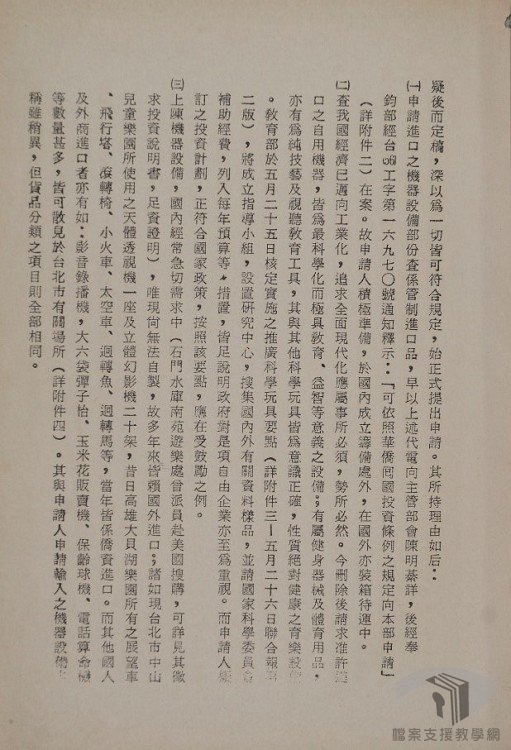 疑後而定犒，深以為一切皆可符合規定，始正式提出申請。其所持理由如后：
㈠申請進口之機器設備部份查係管制進口品，早以上述代電向主管部會陳明綦詳，後經奉
鈞部經台㈣工字第一六九七〇號通知釋示：「可依照華僑囘國投資條例之規定向本部申請」
（詳附件二）在案。故申請人積極準備，於國內成立籌備處外，在國外亦裝箱待運中。
㈡查我國經濟已邁向工業化，追求全面現代化應屬事所必須，勢所必然。今刪除後請求准許進
口之自用機器，皆為最科學化而極具敎育、益智等意義之設備；有屬健身器械及體育用品，
亦有為純技藝及視聽敎育工具，其與其他科學玩具皆為意識正確，性質絕對健康之育樂設備
。敎育部於五月二十五日核定實施之推廣科學玩具要點（詳附件三—五月二十六日聯合報
二版），將成立指導小組，設置研究中心，搜集國內外有關資料樣品，並請國家科學委員會
補助經費，列入每年預算等，措置，皆足說明政府對是項自由企業亦至為重視。而申請人
訂之投資計劃，正符合國家政策，按照該要點，應在受鼓勵之例。
㈢上陳機器設備，國內經常急切需求中（石門水庫南苑遊樂處曾派員赴美國搜購，可詳見其徵
求投資說明書，足資證明），唯現尚無法自製，故多年來皆賴國外進口；諸如現台北市中山
兒童樂園所使用之天體透視機一座及立體幻影機二十架，昔日高雄大貝湖樂園所有之展望車
、飛行塔、滾轉椅、小火車、太空車、迴轉魚、迴轉馬等，當年皆係僑資進口。而其他國人
及外商進口者亦有如：影音錄播機，大六袋彈子怡、玉米花販賣機、保齡球機、電話算命機
等數量甚多，皆可散見於台北市有關場所（詳附件四）。其與申請人申請輸入之機器設備
稱雖稍異，但貨品分類之項目則全部相同。
檔案支援教學網